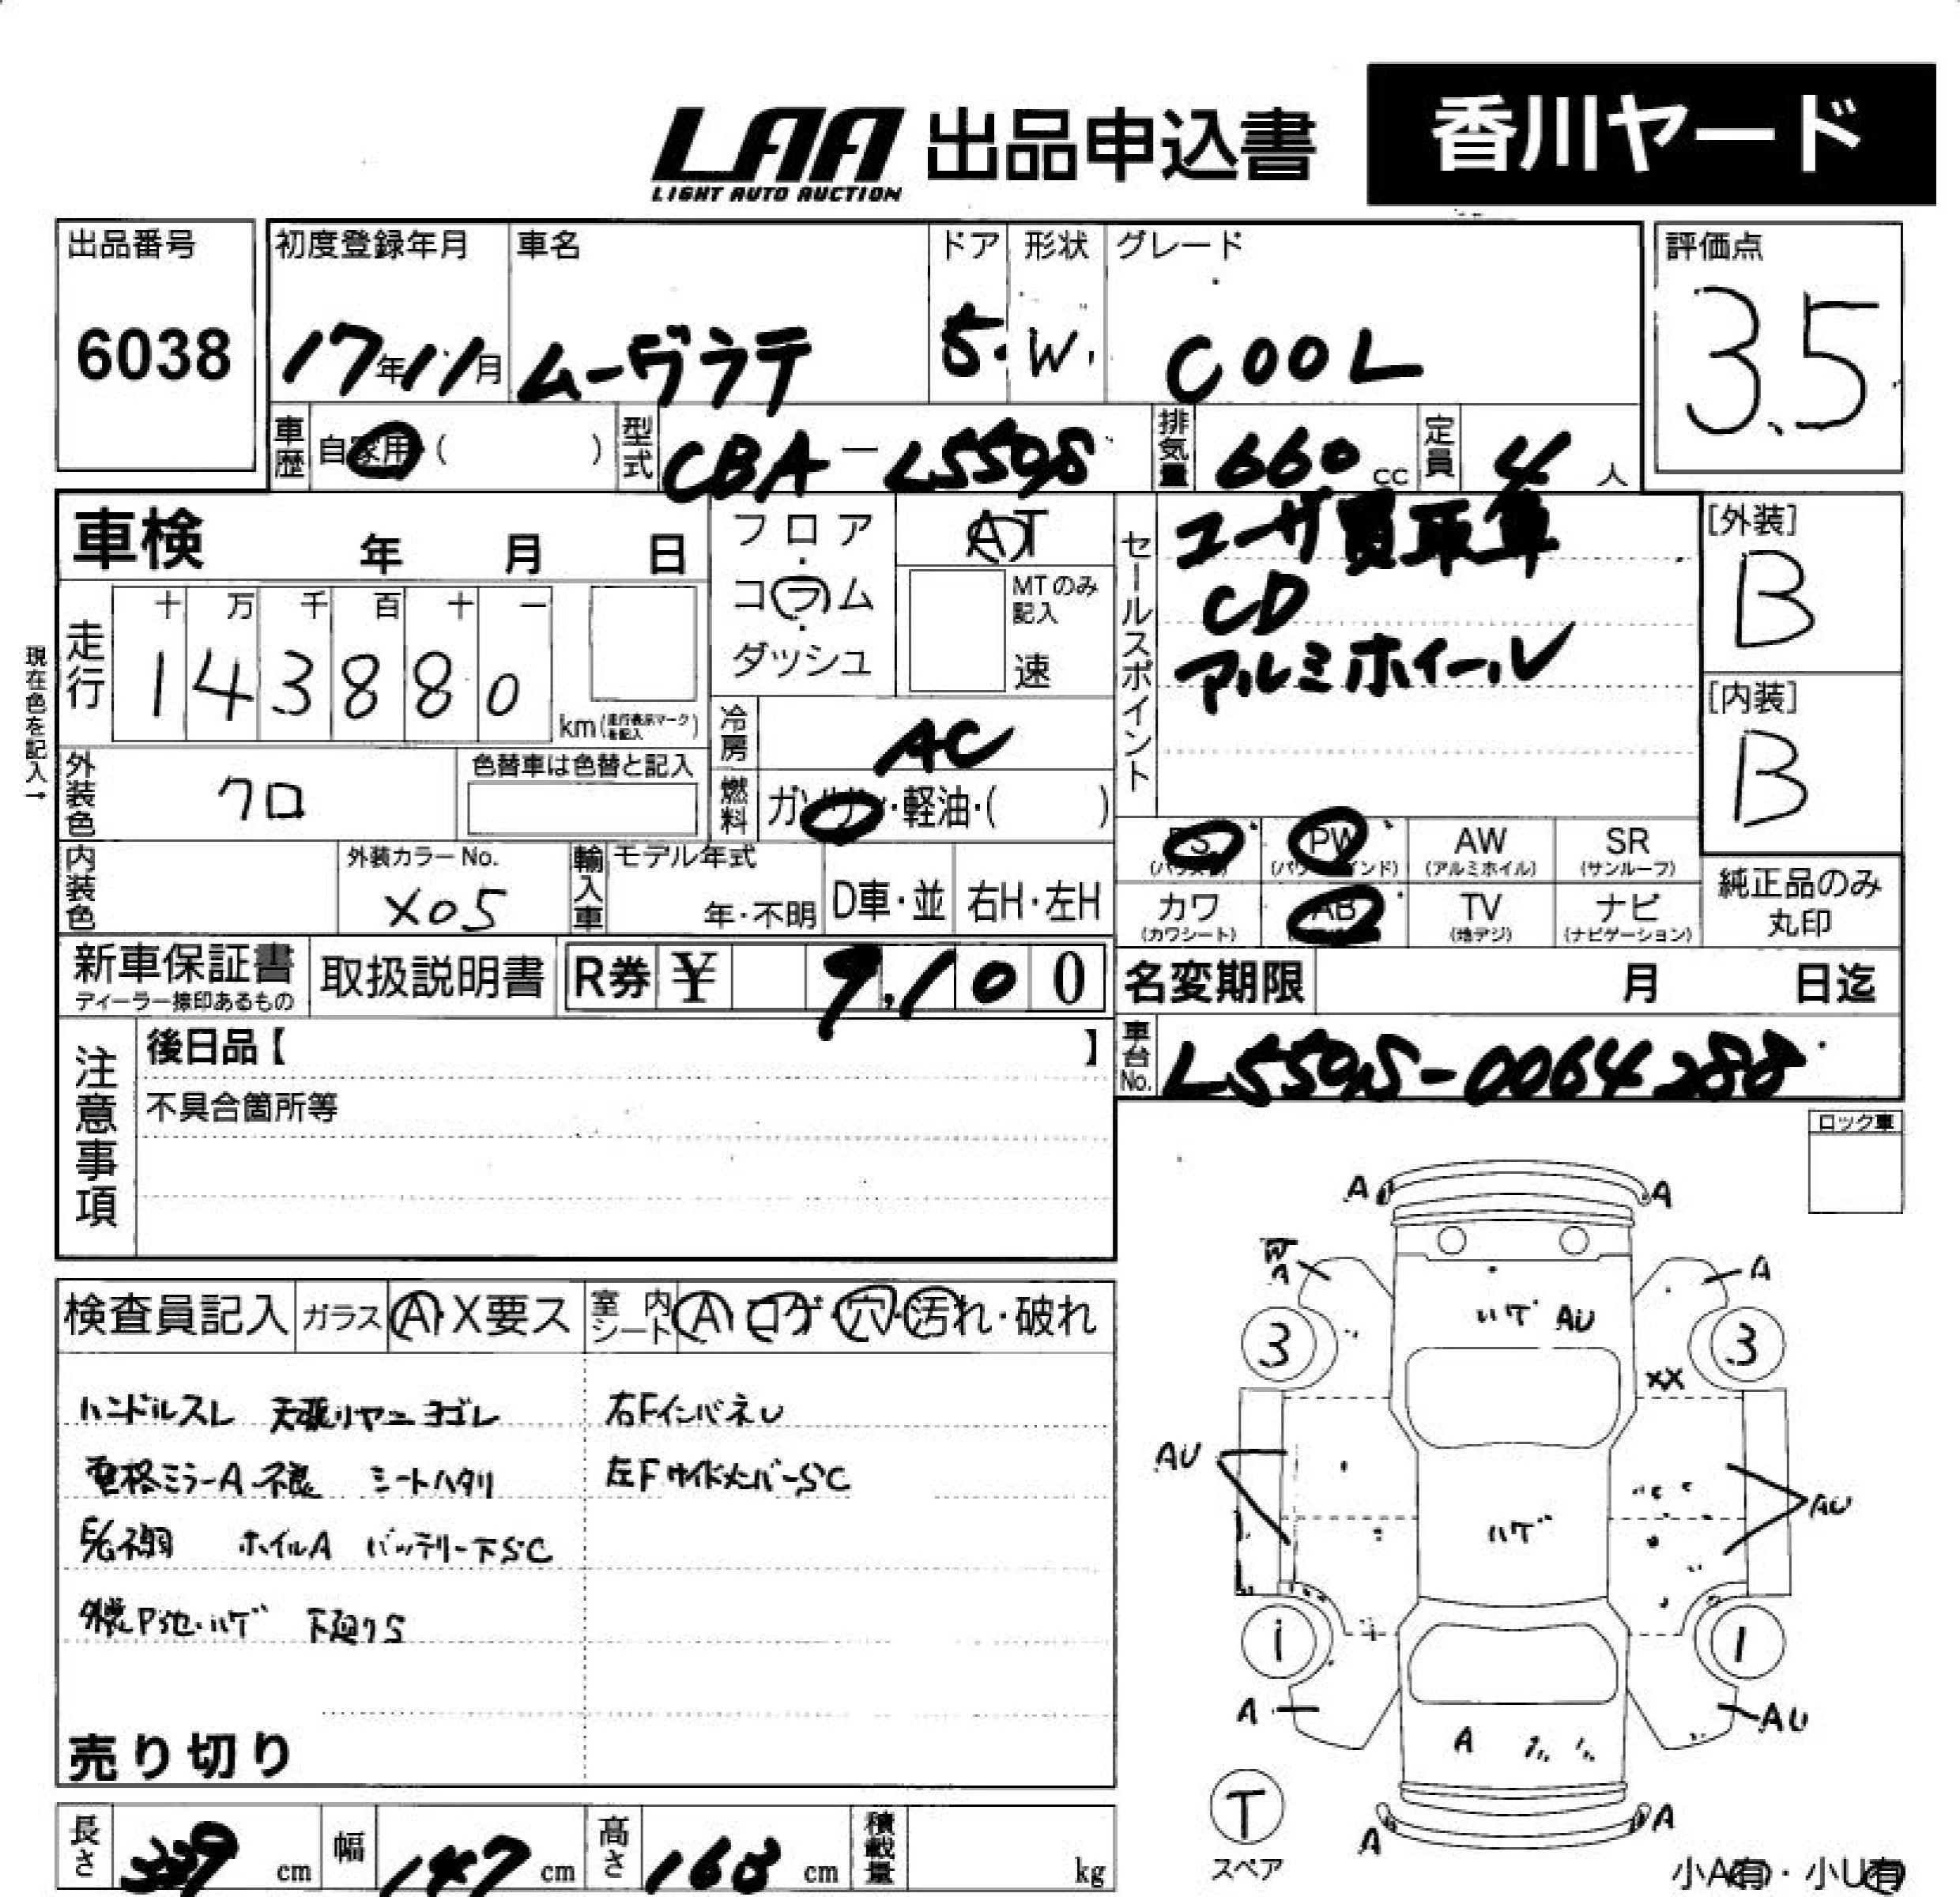 LAA 出品申込書 香川ヤード
LIGHT AUTO AUCTION
出品番号 初度登録年月 車名 ドア 形状 グレード 評価点
6038 17年11月 ムーヴラテ 5 W COOL 3.5
車歴 自家用( ) 型式 CBA-L550S 排気量 660 cc 定員 4 人
車検 年 月 日 フロア・コラム・ダッシュ AT
MTのみ記入 速
セールスポイント ユーザ買取車
CD
アルミホイール
[外装] B
[内装] B
現在色を記入→
走行 十 万 千 百 十 一
1 4 3 8 8 0 km(走行表示マークを記入)
冷房 AC
外装色 クロ 色替車は色替と記入
燃料 ガソリン・軽油・( )
PS PW AW SR
(パワステ) (パワーウインド) (アルミホイル) (サンルーフ)
カワ AB TV ナビ
(カワシート) (地デジ) (ナビゲーション)
純正品のみ
丸印
内装色 外装カラーNo. X05 輸入車 モデル年式 年・不明 D車・並 右H・左H
新車保証書 取扱説明書 R券 ¥ 9,100 名変期限 月 日迄
ディーラー捺印あるもの
車台No. L550S-0064288
注意事項 後日品【 】
不具合箇所等
ロック車
検査員記入 ガラス A・X要ス 室内シート A コゲ・穴・汚れ・破れ
ハンドルスレ 天張リヤニヨゴレ 右FインパネU
電格ミラーA不良 シートハタリ 左FサイドメンバーSC
ホイルA バッテリー下SC
外装P ハゲ 下廻りS
売り切り
長さ 339 cm 幅 147 cm 高さ 163 cm 積載量 kg
A A
A A
ハゲ AU
3 3
XX
AU AU
ハゲ
1 1
A AU
A
T
スペア
A A
小A(有)・小U(有)